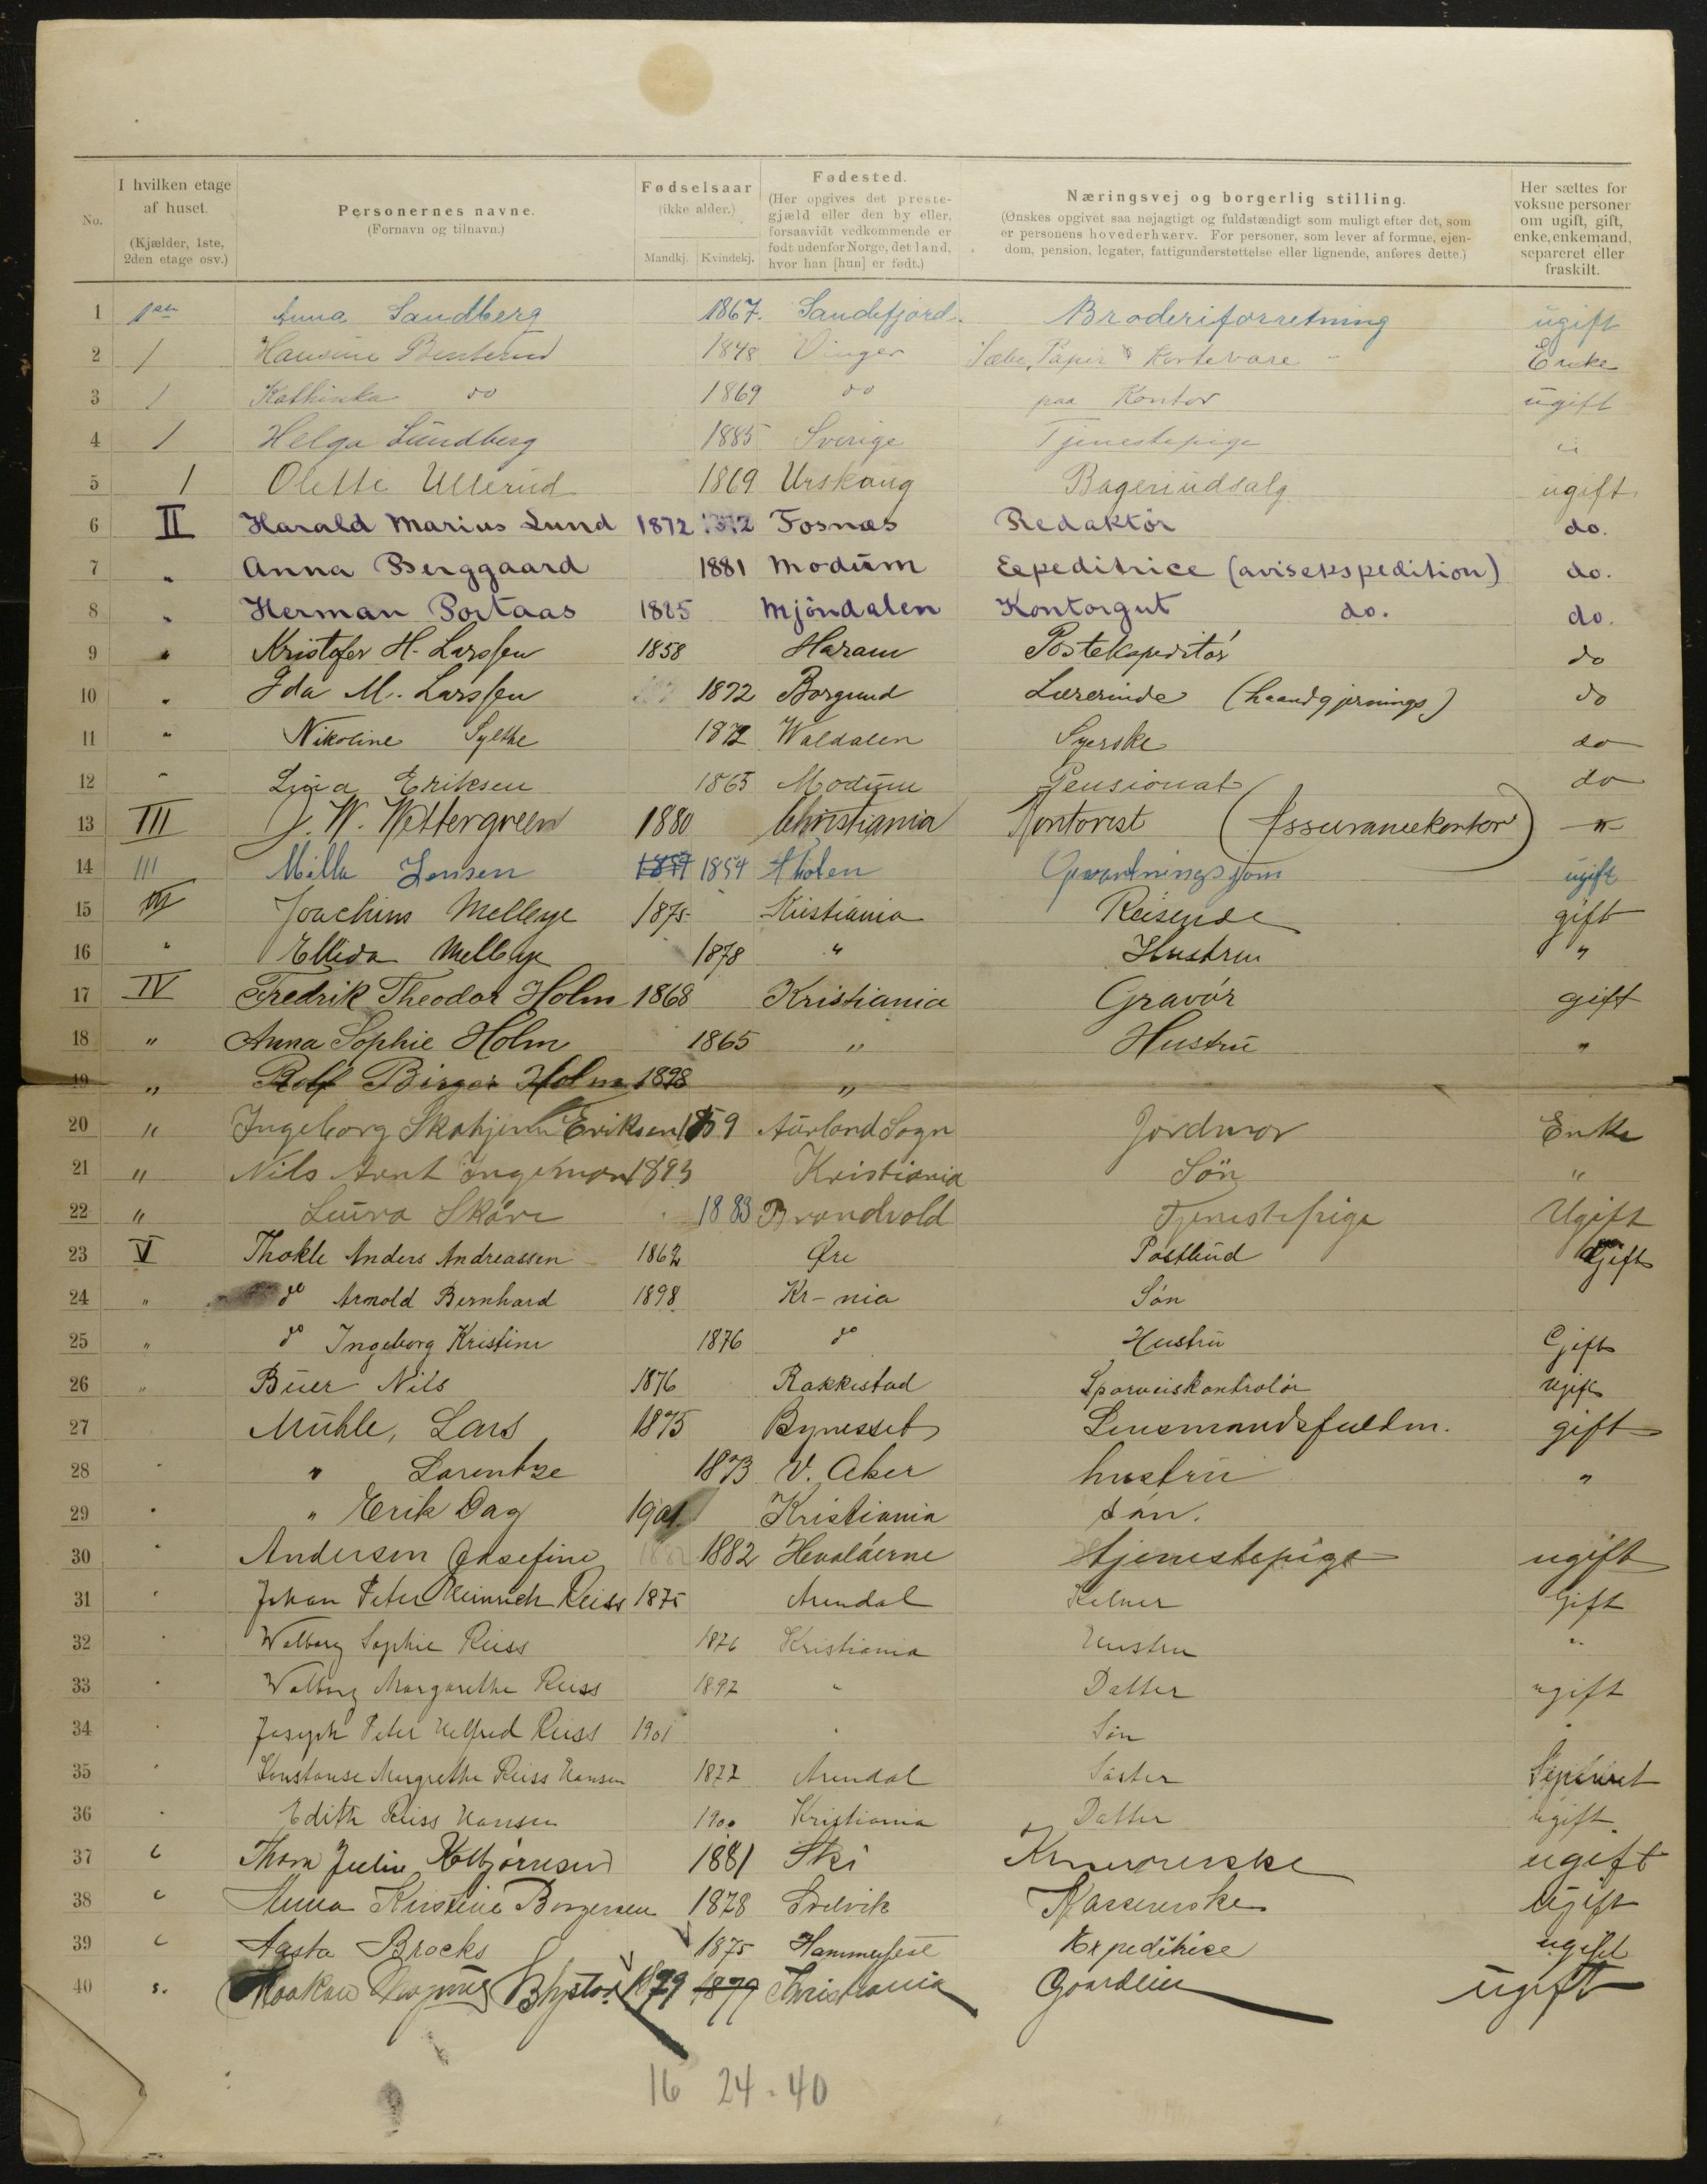 No.
I hvilken etage af huset. (Kjælder, 1ste, 2den etage osv.)
Personernes navne. (Fornavn og tilnavn.)
Fødselsaar (ikke alder.) Mandkj. Kvindekj.
Fødested. (Her opgives det prestegjæld eller den by eller, forsaavidt vedkommende er født udenfor Norge, det land, hvor han [hun] er født.)
Næringsvej og borgerlig stilling. (Ønskes opgivet saa nøjagtigt og fuldstændigt som muligt efter det, som er personens hovederhverv. For personer, som lever af formue, ejendom, pension, legater, fattigunderstøttelse eller lignende, anføres dette.)
Her sættes for voksne personer om ugift, gift, enke, enkemand, separeret eller fraskilt.
1 1ste Anna Sandberg 1867. Sandefjord. Broderiforretning ugift
2 / Hansine 1848 Vinger Sæbe, Papir & Kortevare Enke
3 / Kathinka do 1869 do paa Kontor ugift
4 / Helga Lundberg 1885 Sverige Tjenestepige "
5 / Olette Ullerud 1869 Urskaug Bageriudsalg ugift
6 II Harald Marius Lund 1872 Fosnæs Redaktør do.
7 " Anna Berggaard 1881 Modum Expeditrice (avisekspedition) do.
8 " Herman Portaas 1885 Mjöndalen Kontorgut do. do.
9 " Kristofer H. Larssen 1858 Haram Postekspeditør do
10 " Ida M. Larssen 1872 Borgund Lærerinde (haandgjernings) do
11 " Nikoline Sylthe 1872 Waldalen Syerske do
12 " Lina Eriksen 1865 Modum Pensionat do
13 III J. W. Wettergreen 1880 Christiania Kontorist (Assurancekontor) "
14 III Milla Jensen 1854 Holen ugift
15 III Joachim Mellbye 1875 Kristiania Reisende gift
16 " Ellida Mellbye 1878 " Hustru "
17 IV Fredrik Theodor Holm 1868 Kristiania Gravör gift
18 " Anna Sophie Holm 1865 " Hustru "
19 " Rolf Birger Holm 1898 "
20 " Ingeborg Eriksen 1859 Aurland Sogn Jordmor Enke
21 " Nils Arnt Ingemar 1893 Kristiania Sön "
22 " Laura Skare 1883 Brandvold Tjenestepige Ugift
23 V Thokle Anders Andreassen 1862 Øre Postbud Gift
24 " do Arnold Bernhard 1898 Kr-nia Sön
25 " do Ingeborg Kristine 1876 do Hustru Gift
26 " Buer Nils 1876 Rakkestad Sporveiskontrolör Ugift
27 Mühle, Lars 1875 Bynesset Lensmandsfuldm. gift
28 " " Larentze 1873 V. Aker hustru "
29 " " Erik Dag 1901. Kristiania sön.
30 " Andersen Josefine 1882 Hvalöerne tjenestepige ugift
31 " Johan Peter Heinrich Reiss 1875 Arendal Kelner Gift
32 " Walborg Sophie Reiss 1876 Kristiania Hustru "
33 " Walborg Margarethe Reiss 1897 " Datter ugift
34 " Joseph Peter Reiss 1901 " Sön "
35 " Konstanse Margrethe Reiss Hansen 1877 Arendal Söster Separeret
36 " Edith Reiss Hansen 1900 Kristiania Datter ugift
37 " Thora Julie 1881 Ski ugift
38 " Anna Kirstine Borgersen 1878 Svelvik Kassererske Ugift
39 " Aasta Brocks 1875 Hammerfest Expeditrice ugift
40 s. Haakon Magnus 1879 1879 Christiania ugift
16 24 - 40